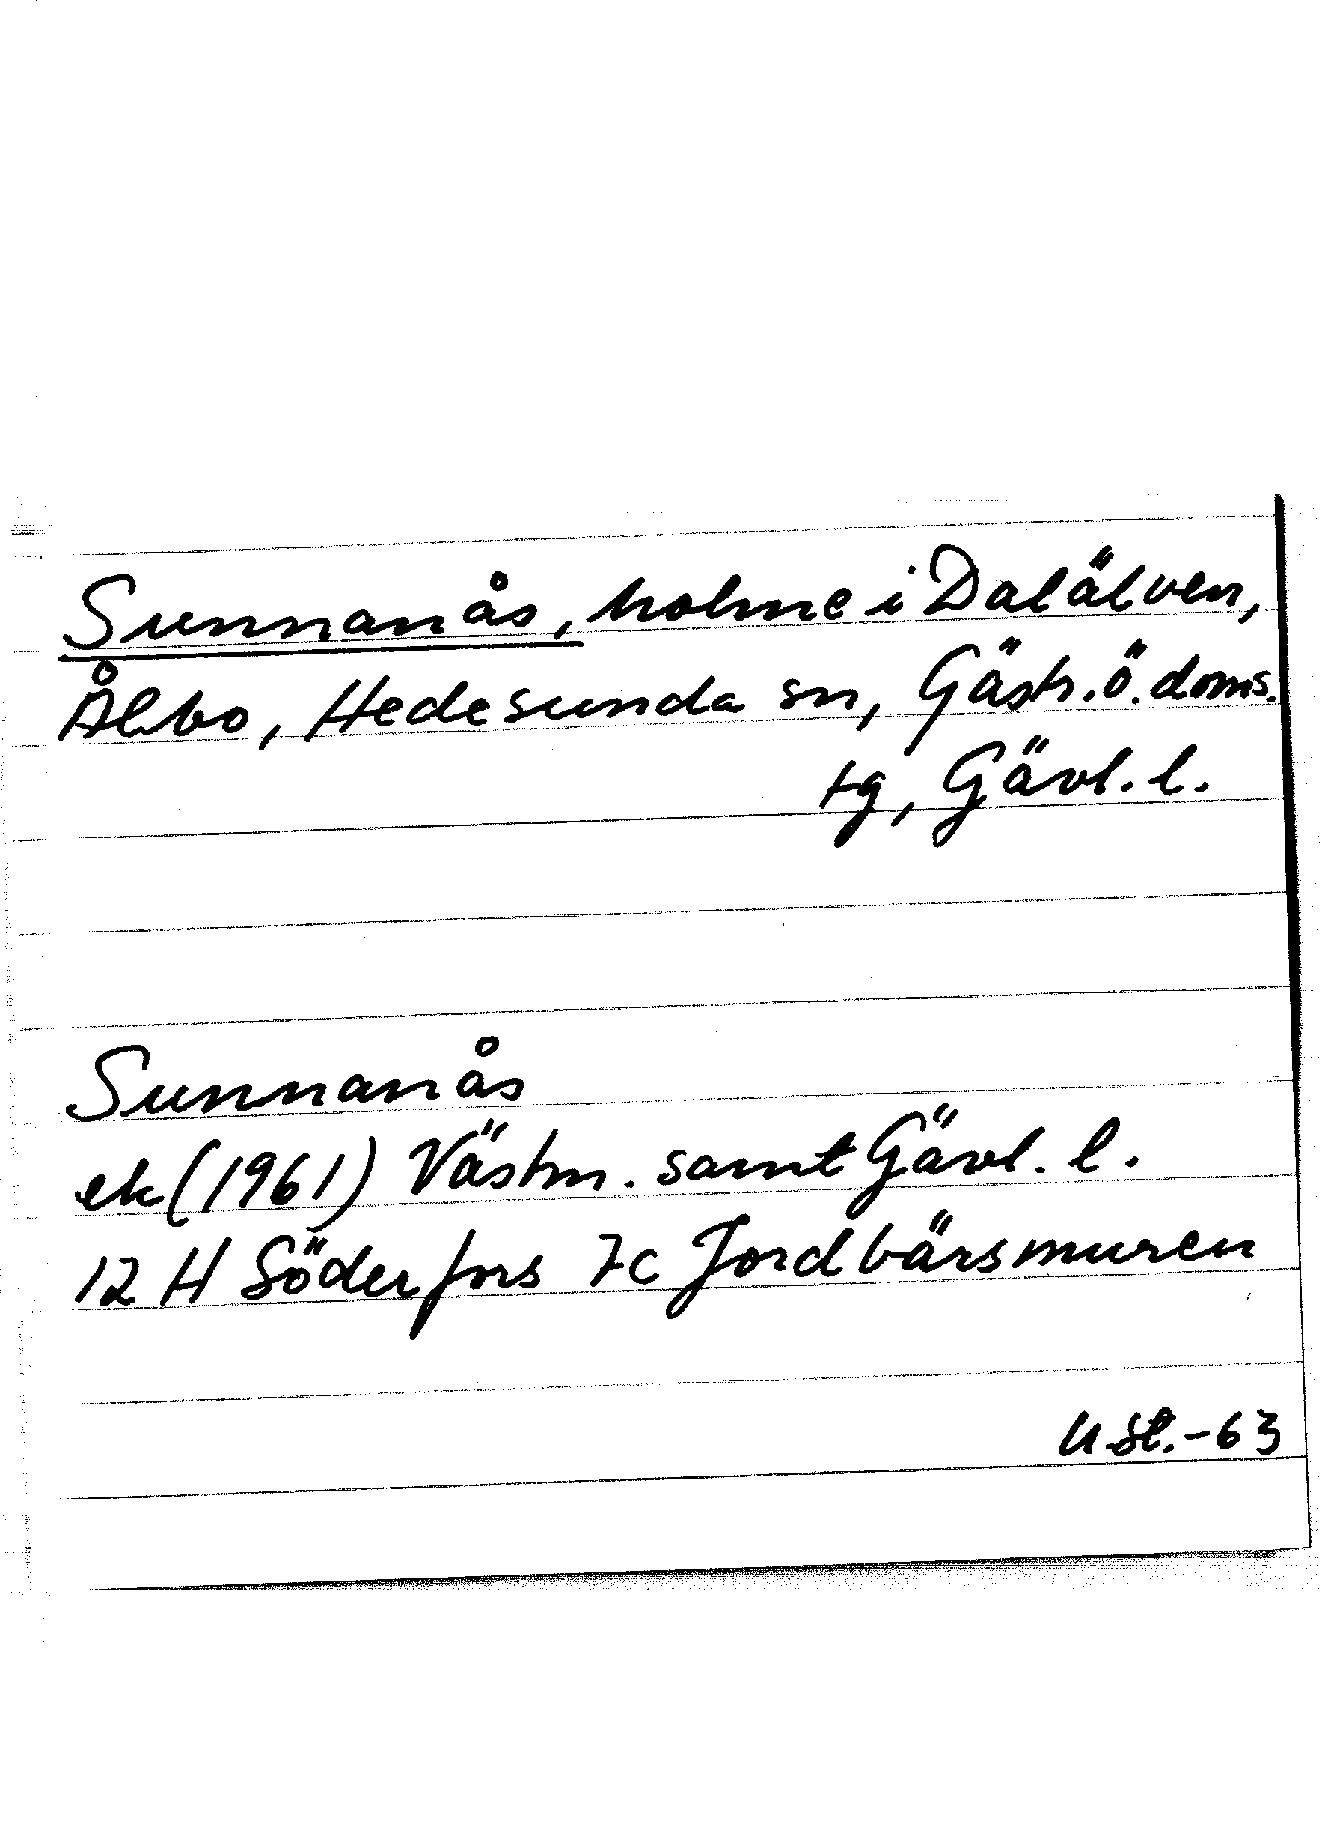 Sunnanås, holme i Dalälven,
Ålbo, Hedesunda sn, Gästr. ö. doms.
tg, Gävl. l.
Sunnanås
ek (1961) Västm. samt Gävl. l.
12 H Söderfors 7c Jordbärsmuren
U St. -63